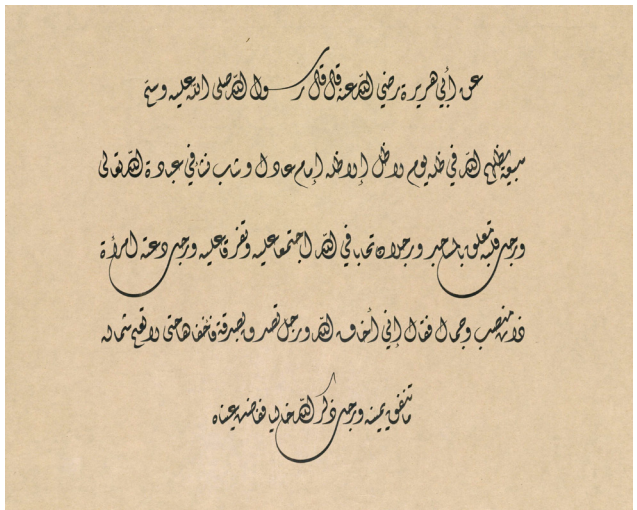 عن أبي هريرة رضي الله عنه قال قال رسول الله صلى الله عليه وسلم
سبعة يظلهم الله في ظله يوم لا ظل إلا ظله إمام عادل وشاب نشأ في عبادة الله تعالى
ورجل قلبه معلق بالمساجد ورجلان تحابا في الله اجتمعا عليه وتفرقا عليه ورجل دعته امرأة
ذات منصب وجمال فقال إني أخاف الله ورجل تصدق بصدقة فأخفاها حتى لا تعلم شماله
ما تنفق يمينه ورجل ذكر الله خاليا ففاضت عيناه